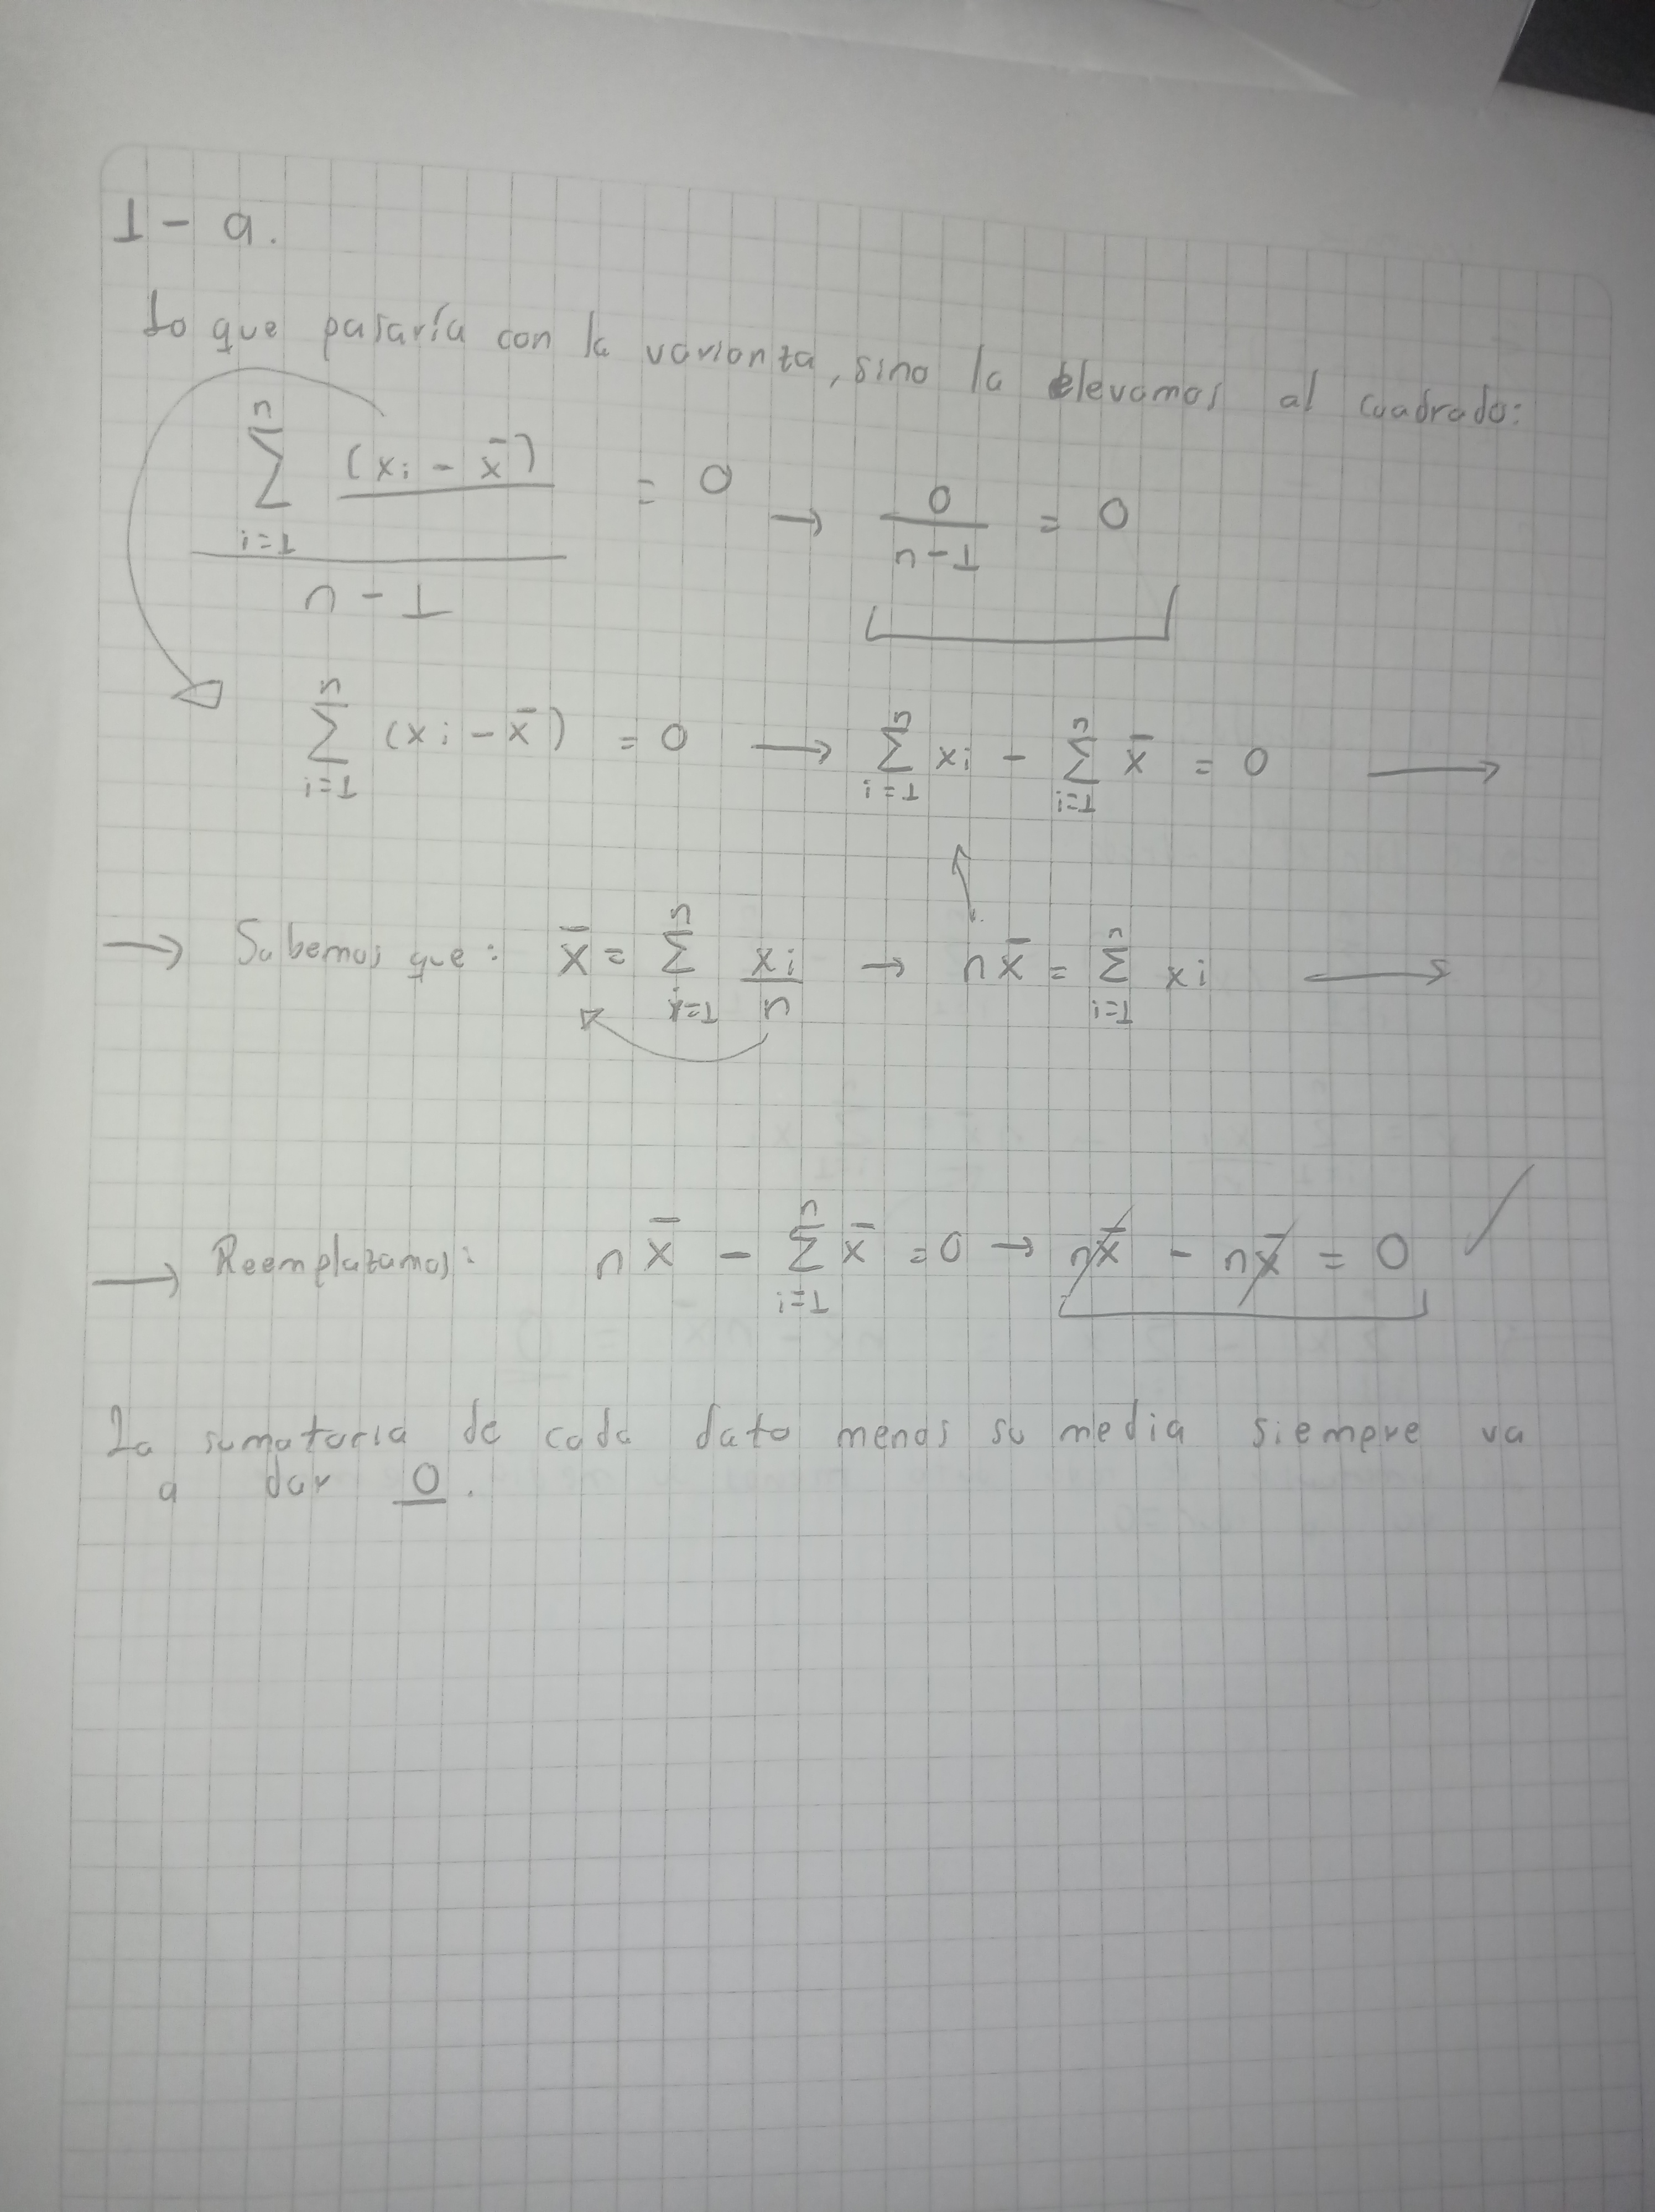 1 - a.
Lo que pasaría con la varianza, sino la elevamos al cuadrado:
n
∑ (xi - x̄) = 0 → 0 = 0
i=1 n-1
n - 1
n n n
∑ (xi - x̄) = 0 → ∑ xi - ∑ x̄ = 0 →
i=1 i=1 i=1
n n
→ Sabemos que: x̄ = ∑ xi → nx̄ = ∑ xi →
i=1 n i=1
n
→ Reemplazamos: nx̄ - ∑ x̄ = 0 → nx̄ - nx̄ = 0
i=1
La sumatoria de cada dato menos su media siempre va
a dar 0.